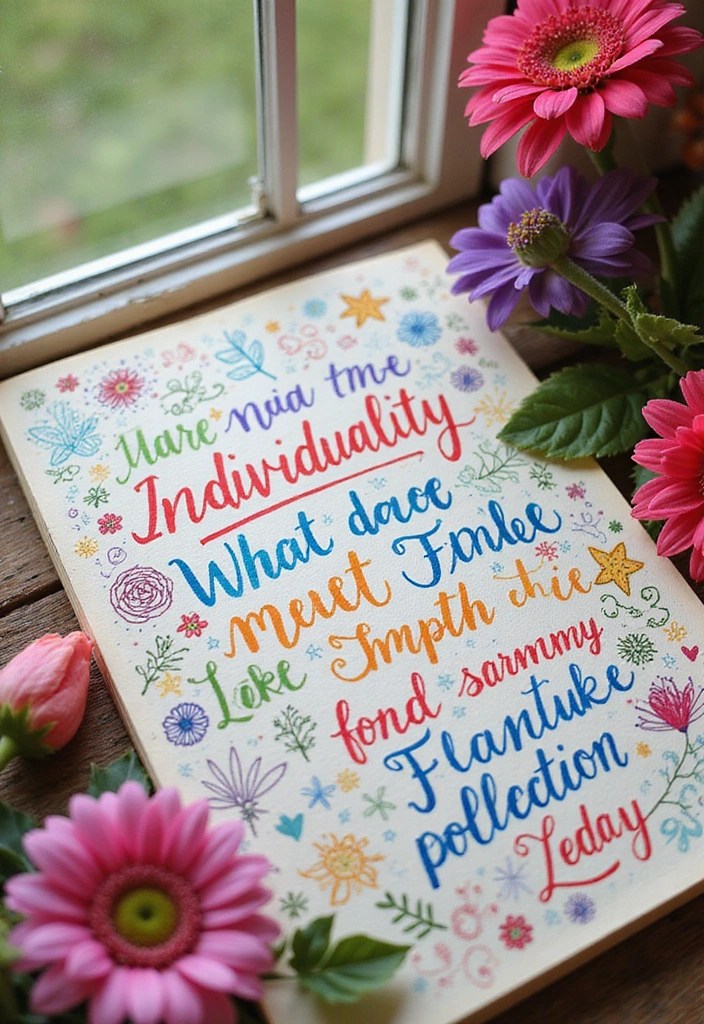 Mare nuid tme
Individuality
What dace
meuet Fonlee
Impth chie
Leke
fond sarmmy
Flantuke
pollection
Leday